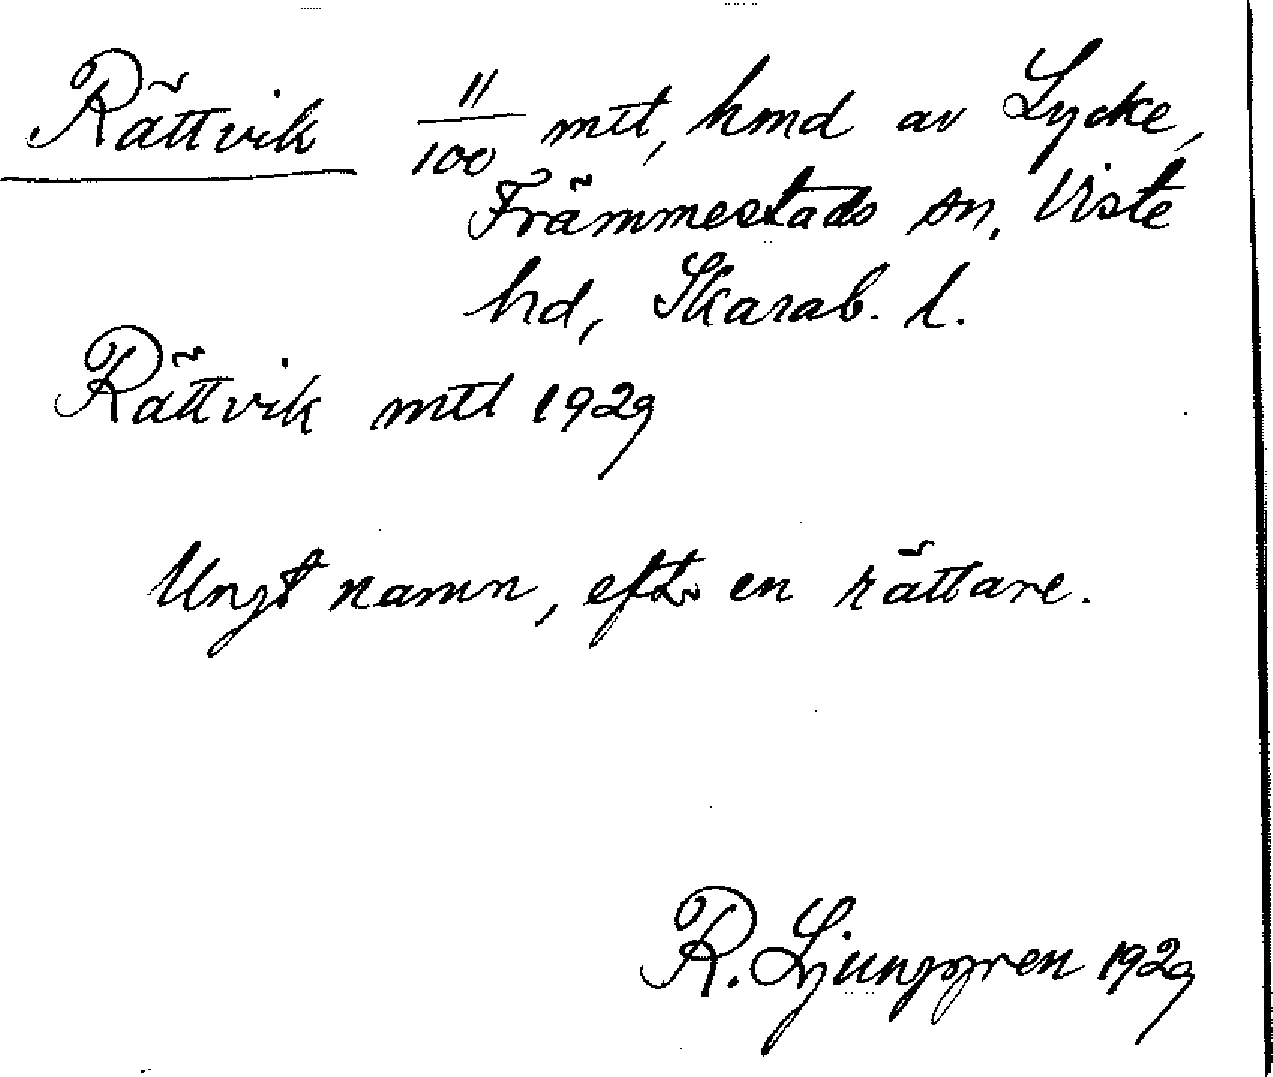 Rättvik 11/100 mtl, hmd av Lycke,
Främmestads sn, Viste
hd, Skarab. l.
Rättvik mtl 1929
Ungt namn, eftr en rättare.
R. Ljunggren 1929